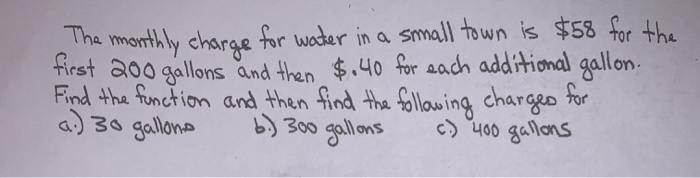 The monthly charge for water in a small town is $58 for the
first 200 gallons and then $.40 for each additional gallon.
Find the function and then find the following charges for
a.) 30 gallons b.) 300 gallons c.) 400 gallons